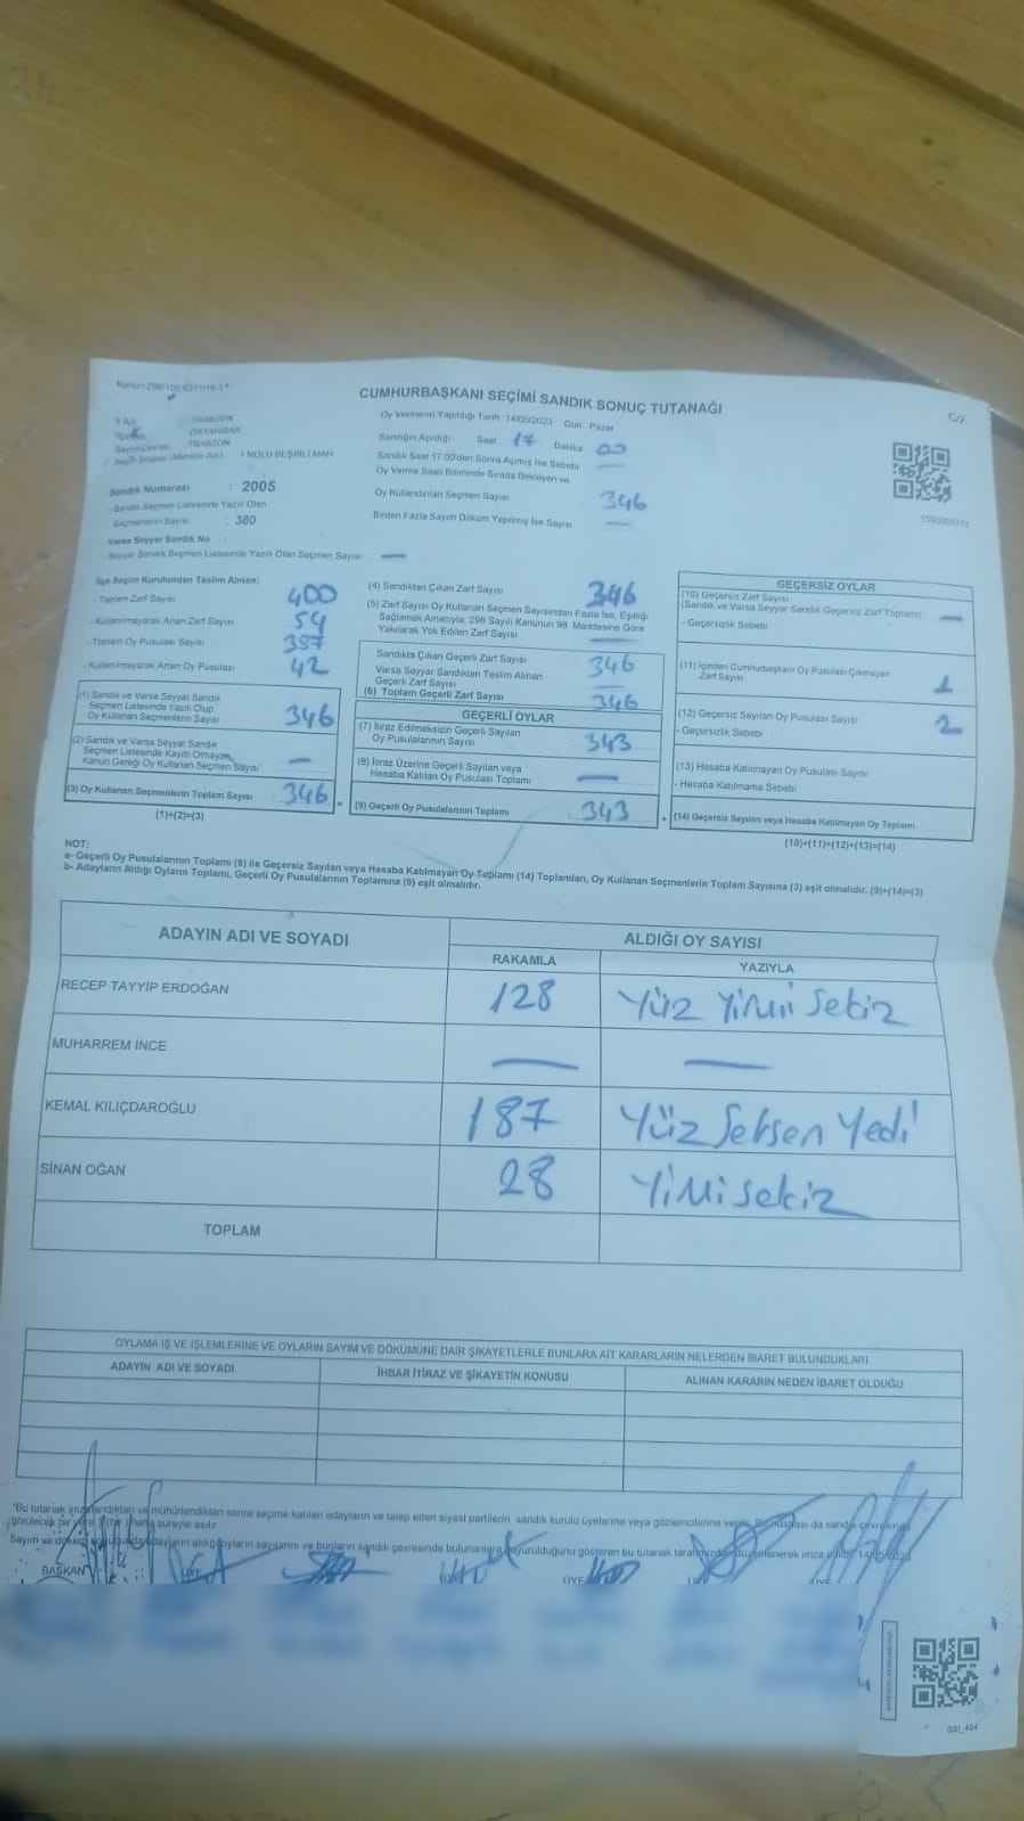 CUMHURBAŞKANI SEÇİMİ SANDIK SONUÇ TUTANAĞI
Oy Vermenin Yapıldığı Tarih: 14/05/2023 Gün: Pazar
Sandığın Açıldığı Saat 17 Dakika 00
Sandık Saat 17.00'den Sonra Açılmış İse Sebebi —
Oy Kullandırılan Seçmen Sayısı 346
Birden Fazla Sayım Döküm Yapılmış İse Sayısı —
TRABZON
1 NOLU BEŞİRLİ MAH
Sandık Numarası : 2005
Sandık Seçmen Listesinde Yazılı Olan
Seçmenlerin Sayısı : 380
Varsa Seyyar Sandık No
Seyyar Sandık Seçmen Listesinde Yazılı Olan Seçmen Sayısı —
İlçe Seçim Kurulundan Teslim Alınan:
- Toplam Zarf Sayısı 400
- Kullanılmayarak Artan Zarf Sayısı 54
- Toplam Oy Pusulası Sayısı
- Kullanılmayarak Artan Oy Pusulası 42
(1) Sandık ve Varsa Seyyar Sandık
Seçmen Listesinde Yazılı Olup
Oy Kullanan Seçmenlerin Sayısı 346
(2) Sandık ve Varsa Seyyar Sandık
Seçmen Listesinde Kayıtlı Olmayan
Kanun Gereği Oy Kullanan Seçmen Sayısı —
(3) Oy Kullanan Seçmenlerin Toplam Sayısı 346
(1)+(2)=(3)
(4) Sandıktan Çıkan Zarf Sayısı 346
(5) Zarf Sayısı Oy Kullanan Seçmen Sayısından Fazla İse, Eşitliği
Sağlamak Amacıyla, 298 Sayılı Kanunun 98. Maddesine Göre
Yakılarak Yok Edilen Zarf Sayısı —
Sandıkta Çıkan Geçerli Zarf Sayısı 346
Varsa Seyyar Sandıktan Teslim Alınan
Geçerli Zarf Sayısı —
(6) Toplam Geçerli Zarf Sayısı 346
GEÇERLİ OYLAR
(7) İtiraz Edilmeksizin Geçerli Sayılan
Oy Pusulalarının Sayısı 343
(8) İtiraz Üzerine Geçerli Sayılan veya
Hesaba Katılan Oy Pusulası Toplamı —
(9) Geçerli Oy Pusulalarının Toplamı 343
GEÇERSİZ OYLAR
(10) Geçersiz Zarf Sayısı
(Sandık ve Varsa Seyyar Sandık Geçersiz Zarf Toplamı) —
- Geçersizlik Sebebi
(11) İçinden Cumhurbaşkanı Oy Pusulası Çıkmayan
Zarf Sayısı 1
(12) Geçersiz Sayılan Oy Pusulası Sayısı 2
- Geçersizlik Sebebi
(13) Hesaba Katılmayan Oy Pusulası Sayısı
- Hesaba Katılmama Sebebi
(14) Geçersiz Sayılan veya Hesaba Katılmayan Oy Toplamı
(10)+(11)+(12)+(13)=(14)
NOT:
a- Geçerli Oy Pusulalarının Toplamı (9) ile Geçersiz Sayılan veya Hesaba Katılmayan Oy Toplamı (14) Toplamları, Oy Kullanan Seçmenlerin Toplam Sayısına (3) eşit olmalıdır. (9)+(14)=(3)
b- Adayların Aldığı Oyların Toplamı, Geçerli Oy Pusulalarının Toplamına (9) eşit olmalıdır.
ADAYIN ADI VE SOYADI
ALDIĞI OY SAYISI
RAKAMLA YAZIYLA
RECEP TAYYİP ERDOĞAN 128 Yüz Yirmi Sekiz
MUHARREM İNCE — —
KEMAL KILIÇDAROĞLU 187 Yüz Seksen Yedi
SİNAN OĞAN 28 Yirmi sekiz
TOPLAM
OYLAMA İŞ VE İŞLEMLERİNE VE OYLARIN SAYIM VE DÖKÜMÜNE DAİR ŞİKAYETLERLE BUNLARA AİT KARARLARIN NELERDEN İBARET BULUNDUKLARI
ADAYIN ADI VE SOYADI İHBAR İTİRAZ VE ŞİKAYETİN KONUSU ALINAN KARARIN NEDEN İBARET OLDUĞU
BAŞKAN ÜYE